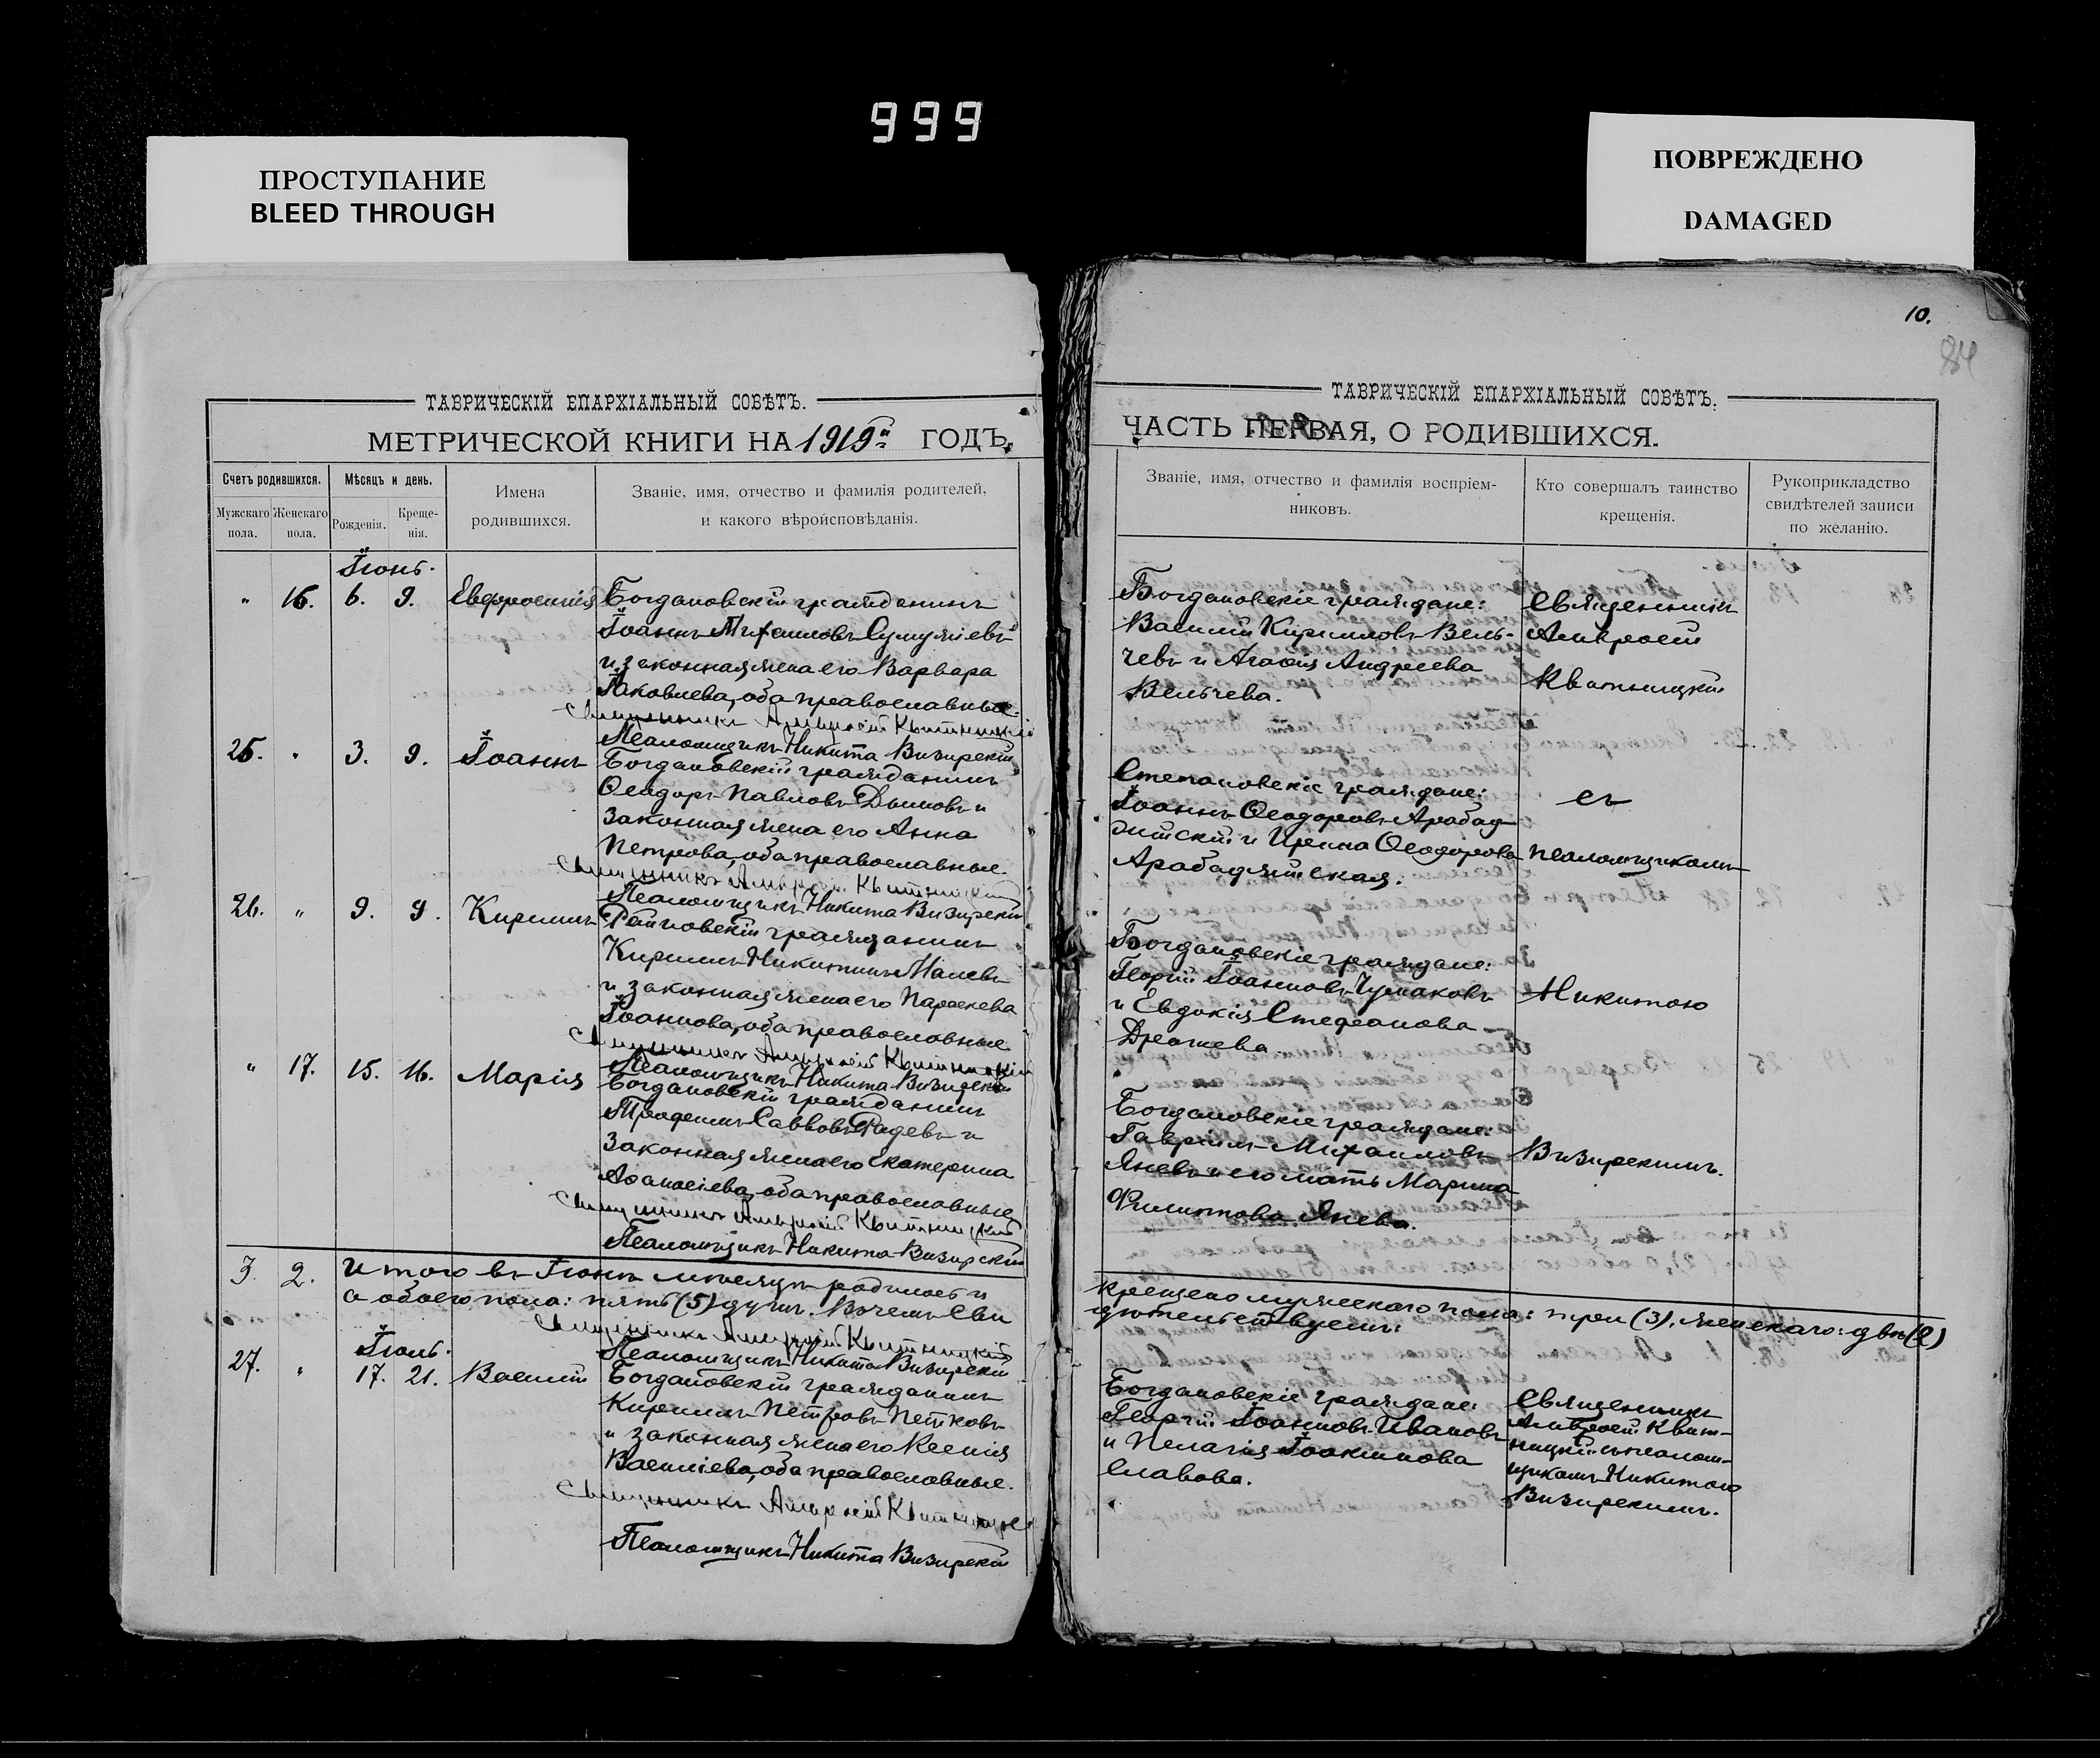 999
ПРОСТУПАНИЕ
BLEED THROUGH
ПОВРЕЖДЕНО
DAMAGED
ТАВРИЧЕСКІЙ ЕПАРХІАЛЬНЫЙ СОВѢТЪ.
МЕТРИЧЕСКОЙ КНИГИ НА 1919й ГОДЪ.
Счетъ родившихся.
Мужскаго пола.
Женскаго пола.
Мѣсяцъ и день.
Рожденія.
Креще-
нія.
Имена
родившихся.
Званіе, имя, отчество и фамилія родителей,
и какого вѣроисповѣданія.
Іюнь.
" 16. 6. 9. Евфросинія
Богдановскій гражданинъ
Іоаннъ Михаиловъ
и законная жена его Варвара
Іаковлева, оба православные.
Священникъ Амвросій Квитницкій
Псаломщикъ Никита Визирскій
25. " 3. 9. Іоаннъ
Богдановскій гражданинъ
Ѳеодоръ Павловъ Дымовъ и
законная жена его Анна
Петрова, оба православные.
Священникъ Амвросій Квитницкій
Псаломщикъ Никита Визирскій
26. " 9. 9. Кириллъ
Райновскій гражданинъ
Кириллъ Никитинъ
и законная жена его Параскева
Іоаннова, оба православные
Священникъ Амвросій Квитницкій
Псаломщикъ Никита Визирскій
" 17. 15. 16. Марія
Богдановскій гражданинъ
Трофимъ Саввовъ Радевъ и
законная жена его Екатерина
Аѳанасіева, оба православные
Священникъ Амвросій Квитницкій
Псаломщикъ Никита Визирскій
3. 2. Итого въ Іюнѣ мѣсяцѣ родилось и
а обоего пола: пять (5) душъ. Въ чемъ сви
Священникъ Амвросій Квитницкій
Псаломщикъ Никита Визирскій
Іюль.
27. " 17. 21. Василій
Богдановскій гражданинъ
Кириллъ Петровъ Петковъ
и законная жена его Ксенія
Василіева, оба православные.
Священникъ Амвросій Квитницкій
Псаломщикъ Никита Визирскій
10.
84
ТАВРИЧЕСКІЙ ЕПАРХІАЛЬНЫЙ СОВѢТЪ.
ЧАСТЬ ПЕРВАЯ, О РОДИВШИХСЯ.
Званіе, имя, отчество и фамилія воспріем-
никовъ.
Кто совершалъ таинство
крещенія.
Рукоприкладство
свидѣтелей записи
по желанію.
Богдановскіе граждане:
Василій Кирилловъ Вель-
чевъ и Агаѳія Андреева
Вельчева.
Священникъ
Амвросій
Квитницкій
Степановскіе граждане:
Іоаннъ Ѳеодоровъ Арабад-
жійскій и Ирина Ѳеодорова
Арабаджійская.
съ
псаломщикомъ
Богдановскіе граждане:
Георгій Іоанновъ Чумаковъ
и Евдокія Стефанова
Драгнева
Никитою
Богдановскіе граждане:
Гавріилъ Михаиловъ
Яневъ и его мать Марина
Филиппова Янева.
Визирскимъ.
крещено мужескаго пола: три (3), женскаго: двѣ (2)
дѣтельствуемъ:
Богдановскіе граждане:
Георгій Іоанновъ Ивановъ
и Пелагія Іоакимова
Славова.
Священникъ
Амвросій Квит-
ницкій съ псалом-
щикомъ Никитою
Визирскимъ.